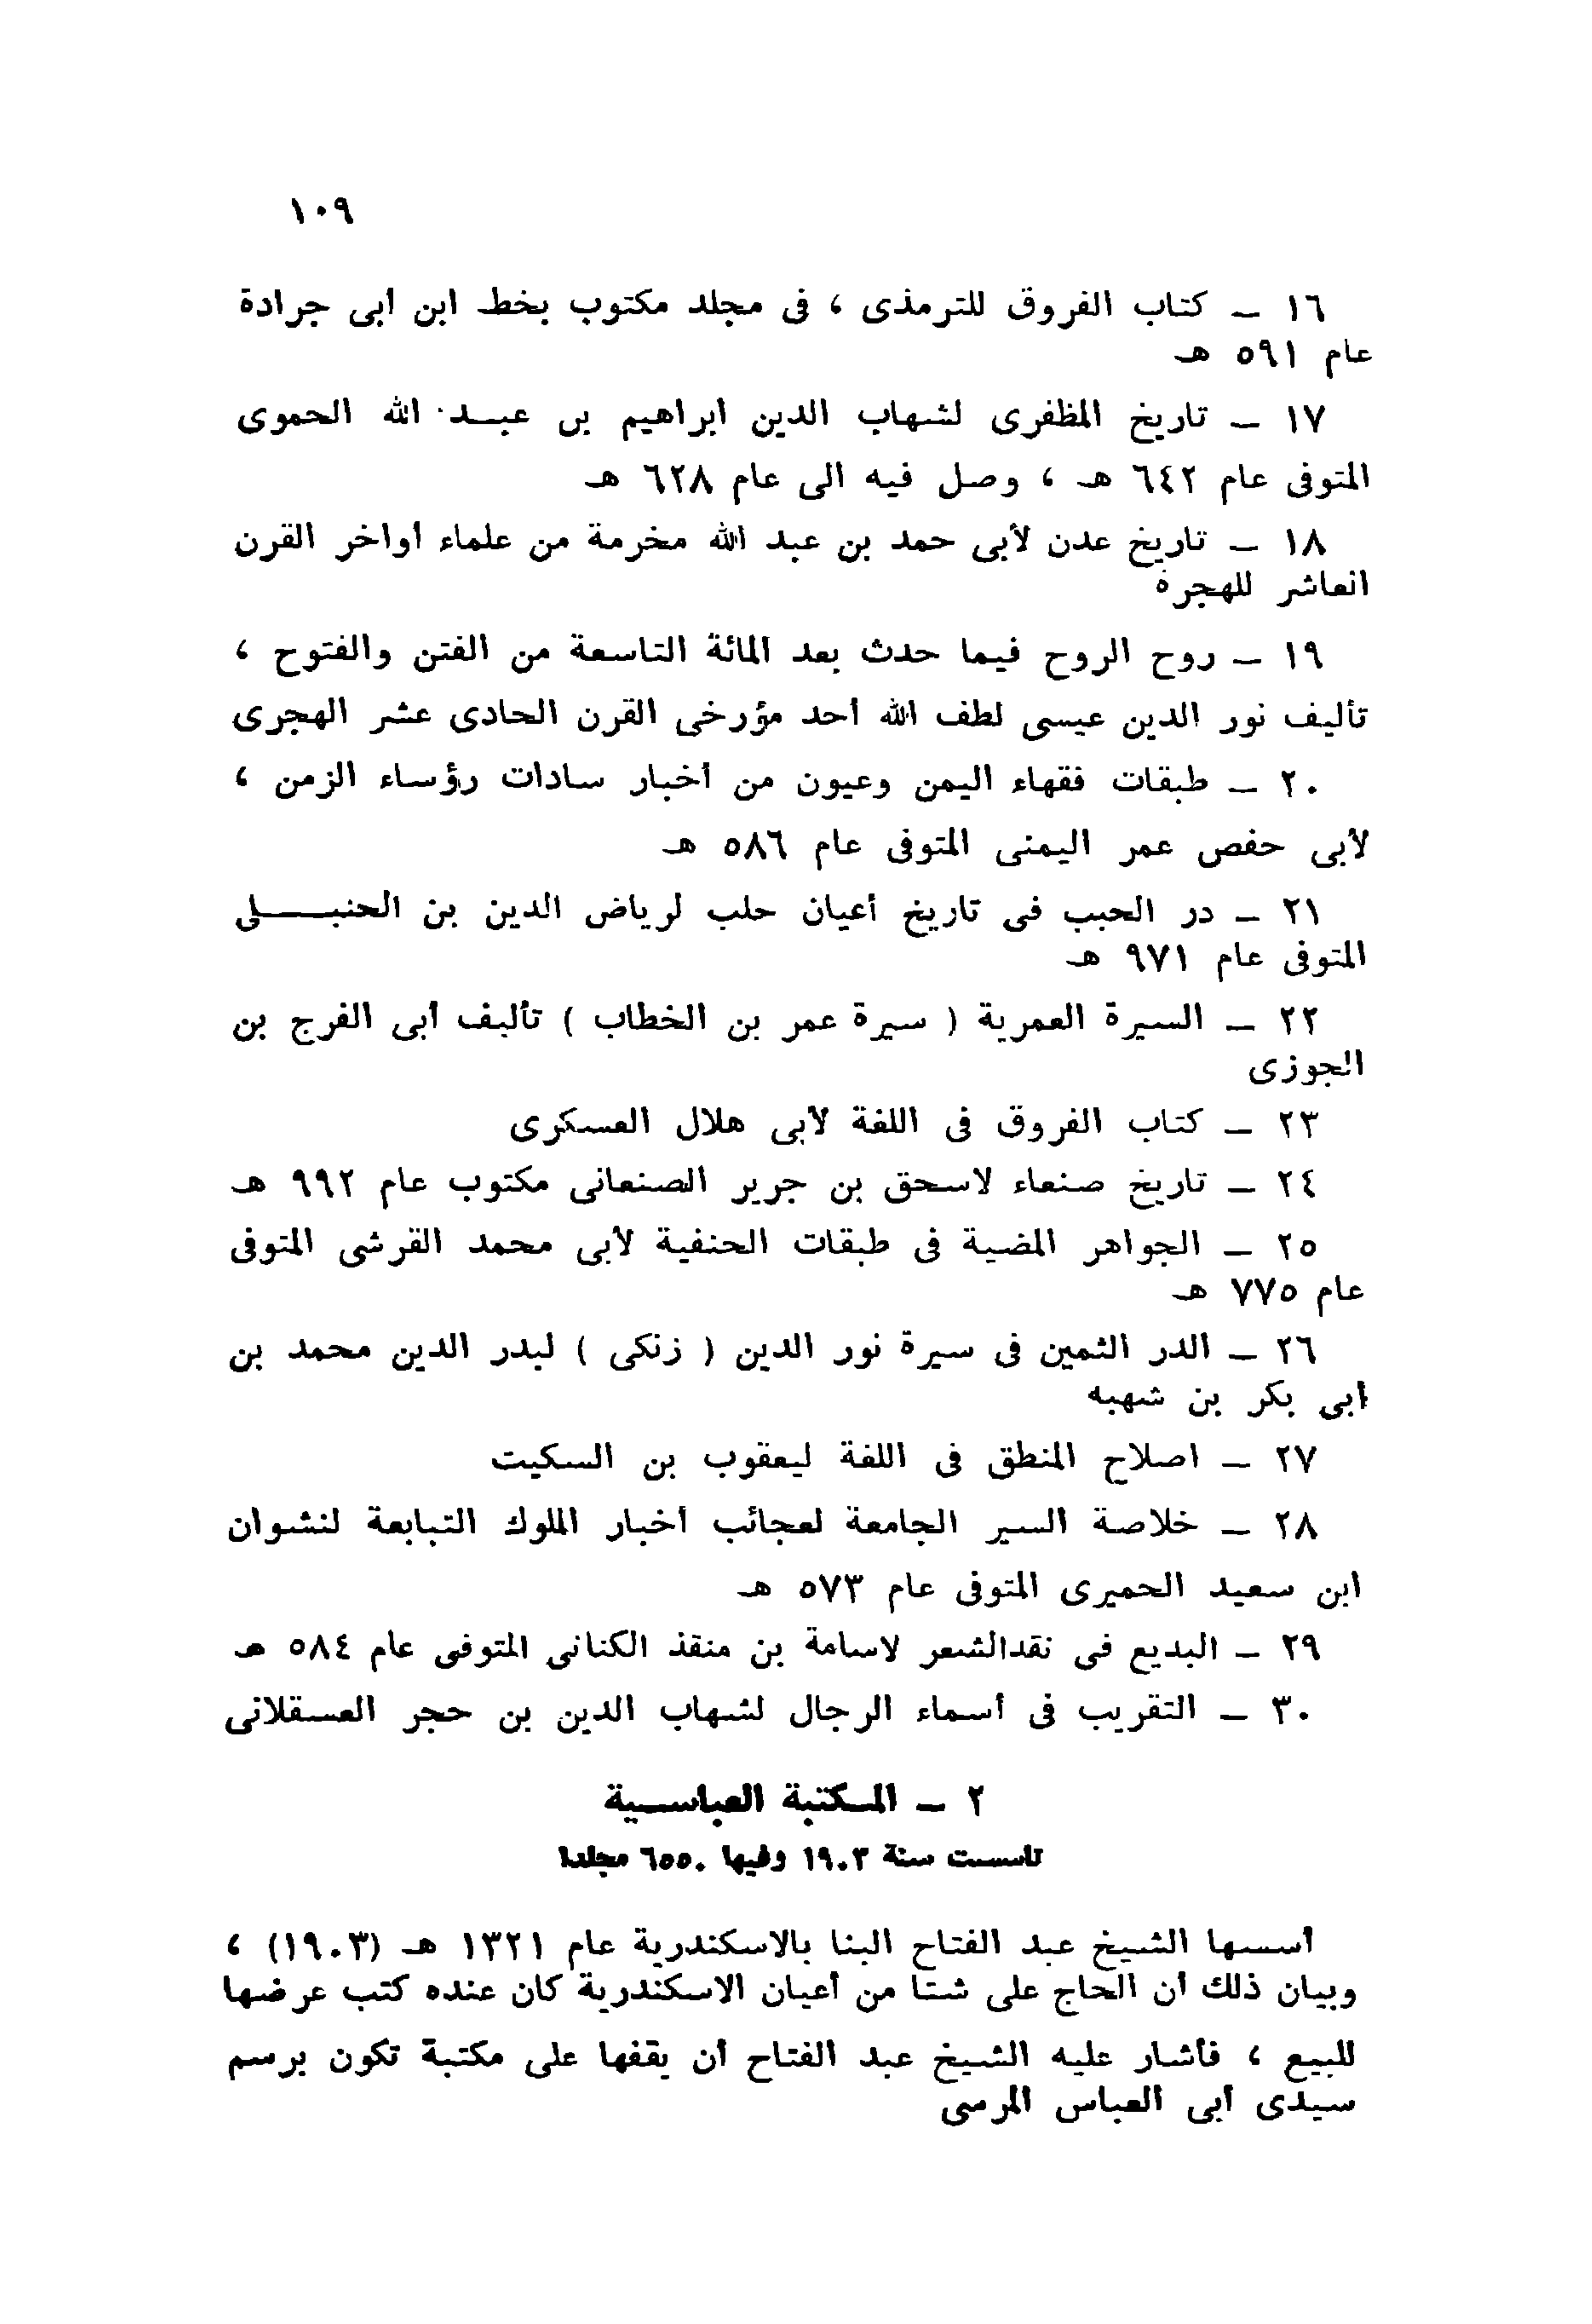 ١٠٩
١٦ ـ كتاب الفروق للترمذى ، فى مجلد مكتوب بخط ابن ابى جرادة
عام ٥٩١ هـ
١٧ ـ تاريخ المظفرى لشهاب الدين ابراهيم بن عبـد الله الحموى
المتوفى عام ٦٤٢ هـ ، وصل فيه الى عام ٦٢٨ هـ
١٨ ـ تاريخ عدن لأبى حمد بن عبد الله مخرمة من علماء أواخر القرن
العاشر للهجرة
١٩ ـ روح الروح فيما حدث بعد المائة التاسعة من الفتن والفتوح ،
تأليف نور الدين عيسى لطف الله أحد مؤرخى القرن الحادى عشر الهجرى
٢٠ ـ طبقات فقهاء اليمن وعيون من أخبار سادات رؤساء الزمن ،
لأبى حفص عمر اليمنى المتوفى عام ٥٨٦ هـ
٢١ ـ در الحبب فى تاريخ أعيان حلب لرياض الدين بن الحنبـــلى
المتوفى عام ٩٧١ هـ
٢٢ ـ السيرة العمرية ( سيرة عمر بن الخطاب ) تأليف أبى الفرج بن
الجوزى
٢٣ ـ كتاب الفروق فى اللغة لأبى هلال العسكرى
٢٤ ـ تاريخ صنعاء لاسحق بن جرير الصنعانى مكتوب عام ٩٩٢ هـ
٢٥ ـ الجواهر المضية فى طبقات الحنفية لأبى محمد القرشى المتوفى
عام ٧٧٥ هـ
٢٦ ـ الدر الثمين فى سيرة نور الدين ( زنكى ) لبدر الدين محمد بن
أبى بكر بن شهبه
٢٧ ـ اصلاح المنطق فى اللغة ليعقوب بن السكيت
٢٨ ـ خلاصة السير الجامعة لعجائب أخبار الملوك التبابعة لنشوان
ابن سعيد الحميرى المتوفى عام ٥٧٣ هـ
٢٩ ـ البديع فى نقدالشعر لاسامة بن منقذ الكنانى المتوفى عام ٥٨٤ هـ
٣٠ ـ التقريب فى أسماء الرجال لشهاب الدين بن حجر العسقلانى
٢ ـ المـكتبة العباسـية
تأسست سنة ١٩٠٣ وفيها ٦٥٥٠ مجلدا
أسسها الشيخ عبد الفتاح البنا بالاسكندرية عام ١٣٢١ هـ (١٩٠٣) ،
وبيان ذلك أن الحاج على شتا من أعيان الاسكندرية كان عنده كتب عرضها
للبيع ، فأشار عليه الشيخ عبد الفتاح أن يقفها على مكتبة تكون برسم
سيدى أبى العباس المرسى